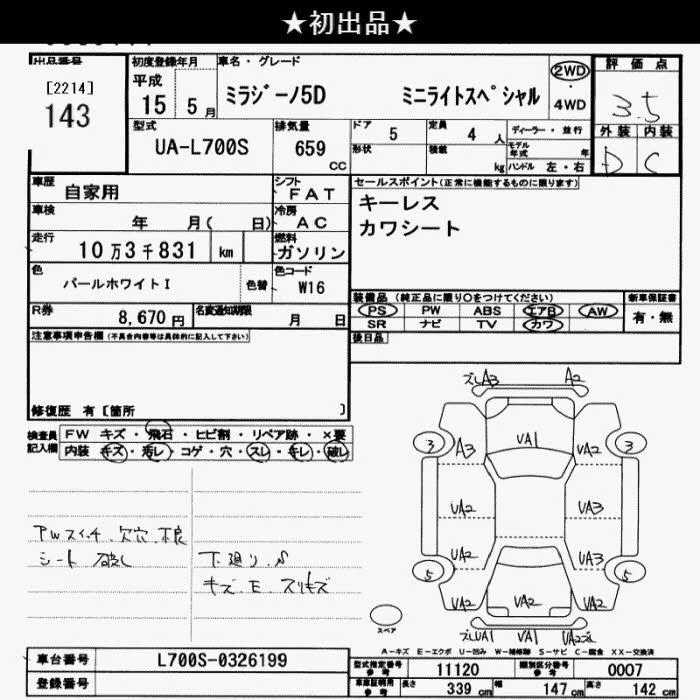 ★初出品★
出品番号
[2214]
143
初度登録年月
平成
15 5月
車名・グレード
ミラジーノ5D ミニライトスペシャル
2WD
・
4WD
評価点
3.5
外装 内装
D C
型式
UA-L700S
排気量
659
CC
ドア 5 定員 4人 ディーラー・並行
形状 積載 kg モデル年式 年
ハンドル 左・右
車歴 自家用
シフト FAT
車検 年 月( 日)
冷房 AC
走行 10万3千831 km
燃料 ガソリン
色 パールホワイトI 色替
色コード W16
R券 8,670円 名変通知期限 月 日
セールスポイント(正常に機能するものに限ります)
キーレス
カワシート
装備品(純正品に限り○をつけてください)
PS PW ABS エアB AW
SR ナビ TV カワ
新車保証書
有・無
後日品
注意事項申告欄(不具合内容等は具体的に記入して下さい)
修復歴 有[箇所 ]
検査員記入欄
FW キズ・飛石・ヒビ割・リペア跡・×要
内装 キズ・汚レ・コゲ・穴・スレ・キレ・破レ
PWスイッチ.欠穴.不良
シート 破レ
下廻り.S
キズ.E.スリキズ
ズレA3 A2
3 A3 VA1 VA2 3
VA2 VA3
VA2 VA3
5 VA2 VA2 VA2 5
ズレVA1 VA1 VA2ズレ
スペア
A-キズ E-エクボ U-凹み W-補修跡 S-サビ C-腐食 XX-交換済
車台番号 L700S-0326199
登録番号
型式指定番号 参考 11120 類別区分番号 参考 0007
車庫証明用 参考 長さ 339cm 幅 147cm 高さ 142cm